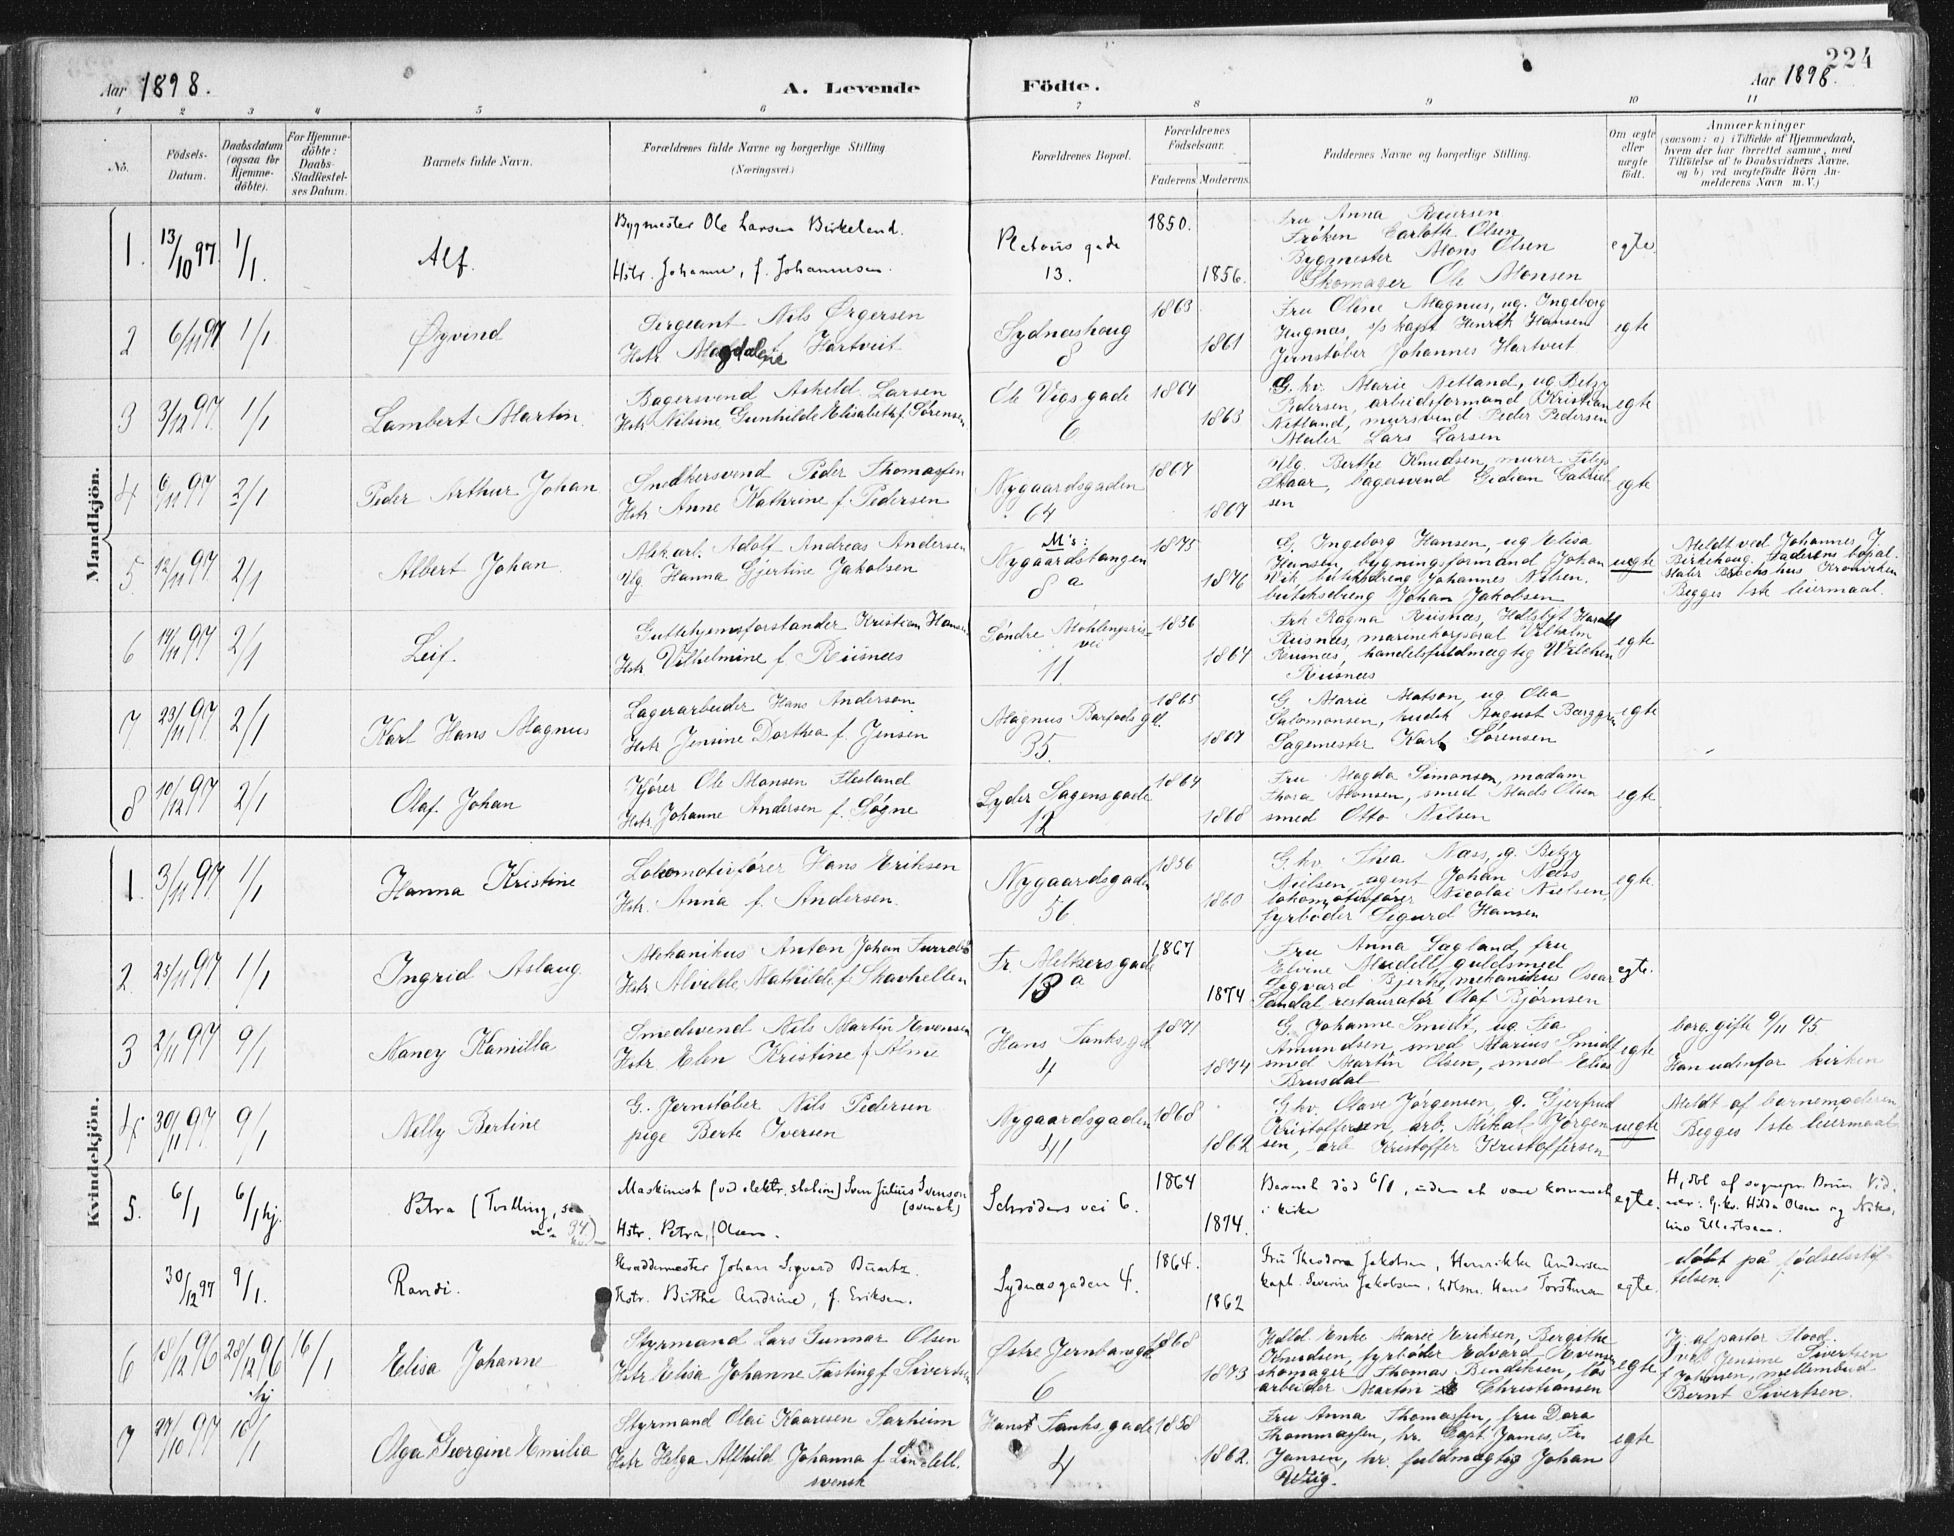 224
Aar 1898.
A. Levende
Födte.
Aar 1898.
1 2 3 4 5 6 7 8 9 10 11
No.
Födsels-
Datum.
Daabsdatum
(ogsaa for
Hjemme-
döbte).
For Hjemme-
döbte:
Daabs-
Stadfæstel-
ses Datum.
Barnets fulde Navn.
Forældrenes fulde Navne og borgerlige Stilling
(Næringsvei.)
Forældrenes Bopæl.
Forældrenes
Födselsaar.
Faderens Moderens
Faddernes Navne og borgerlige Stilling.
Om ægte
eller
uægte
födt.
Anmærkninger
(saasom: a) i Tilfælde af Hjemmedaab,
hvem der har forrettet samme, med
Tilföielse af to Daabsvidners Navne,
og b) ved uægtefödte Börn An-
melderens Navn m. V.)
Mandkjön.
1. 13/10 97. 1/1. Alf.
Bygmester Ole Larsen Birkeland.
Hstr. Johanne, f. Johannesen.
13.
1850.
1856.
Fru Anna
Frøken Carloth. Olsen
Bygmester Mons Olsen
Skomager Ole Monsen
egte.
2 6/11 97 1/1 Øyvind
Sergeant Nils Ørgersen
Hstr Magdalene Hartveit
Sydnæshaug
8
1863
1861
Fru Oline Magnus, ug. Ingeborg
s/s kapt Henrik Hansen
Jernstøber Johannes Hartveit
egte
3 3/12 97. 1/1 Lambert Martin.
Bagersvend Askeld Larsen
Hstr Nilsine Gunhilde Elisabeth f. Sørensen
Ole Vigs gade
6
1864
1863
G. kv. Marie Netland, ug Betzy
Pedersen, arbeidsformand Kristian
Netland, mursvend Peder Pedersen
Maler Lars Larsen
egte
4 6/11 97 2/1 Peder Arthur Johan
Snedkersvend Peder Thomassen
Hstr Anne Kathrine f Pedersen
Nygaardsgaden
64
1867
1867
Ug. Berthe Knudsen, murer
Skaar, bagersvend Gidian Gabriel
sen
egte
5 12/11 97 2/1 Albert Johan.
Adolf Andreas Andersen
Ug Hanna Gjertine Jakobsen
M's:
Nygaardstangen
8 a
1875
1876
G. Ingeborg Hansen, ug Elisa
Hansen, bygningsformand Johan
Vik, butiksdreng Johannes Nilsen.
butiksdreng Johan Jakobsen
uegte
Meldt ved Johannes J.
Birkehaug. Faderens bopæl.
Begges 1ste leiermaal.
6 14/11 97 2/1 Leif.
Guttehjemsforstander Kristian Hansen
Hstr Vilhelmine f Riisnæs
Søndre Møhlenpris
vei
11
1856
1864
Frk Ragna Riisnæs,
Riisnæs, marinekorporal Vilhelm
Riisnæs, handelsfuldmægtig
Riisnæs
egte
7 23/11 97 2/1 Karl Hans Magnus
Lagerarbeider Hans Anderson
Hstr Jensine Dorthea f. Jensen
Magnus Barfods gd.
35.
1865
1867
G Marie Matson, ug Olea
Salomonsen, August Berggren
Sagemester Karl Sørensen
egte
8 10/12 97 2/1 Olaf Johan
Kjører Ole Monsen Flesland
Hstr. Johanne Andersen f. Søgne
Lyder Sagens gade
12
1864
1868
Fru Magda Simonsen, madam
Thora Monsen, smed Mads Olsen
smed Otto Nilsen
egte
Kvindekjön.
1. 3/11 97 1/1 Hanna Kristine
Lokomotivfører Hans Eriksen
Hstr. Anna f. Andersen.
Nygaardsgaden
56
1856
1860
G. kv. Thea Næss, g. Betzy
Nielsen, agent Johan Næss
lokomotivfører Nicolai Nielsen,
fyrbøder Sigurd Hansen
egte.
2. 25/11 97 1/1 Ingrid Aslaug.
Mekanikus Anton Johan
Hstr Alvilde Mathilde f. Skavhellen
Fr. Meltzers gade
13 a
1867
1874
Fru Anna Sagland, fru
Elvine Mudell, guldsmed
Sigvard Bjerke, mekanikus Oscar
Sandal, restauratør Olaf Bjørnsen
egte.
3 2/11 97 9/1 Nancy Kamilla
Smedsvend Nils Martin Evensen
Hstr. Elen Kristine f Alme
Hans Tanks gd
4
1871
1874
G. Johanne Smidt, ug. Lea
Amundsen, smed Marius Smidt
smed Martin Olsen, smed Elias
Brusdal
egte
borg. gift 9/11 95.
Han udenfor kirken
4 30/11 97 9/1 Nelly Bertine
G. Jernstøber Nils Pedersen
pige Berte Iversen
Nygaardsgaden
41
1868
1862
G. kv. Olave Jørgensen, g. Gjertrud
Kristoffersen, arb. Mikal Jørgen
sen, arb Kristoffer Kristoffersen
uegte
Meldt af barnemoderen
Begges 1ste leiermaal
5. 6/1 6/1 hj. Petra (Tvilling,
Maskinist (ved elektr. station) Sven Julius Svenson
(svensk)
Hstr. Petra, f Olsen.
Schrøders vei 6.
1864
1874.
Barnet död 6/1, uden at være kommet
i kirke
egte.
Hj. döbt af sognepr. Brun Vid-
ner: G.kv. Hilda Olsen og
Ellertsen.
30/12 97 9/1. Randi.
Skræddermester Johan Sigvard
Hstr. Birthe Andrine, f. Eriksen.
Sydnæsgaden 4.
1864.
1862
Fru Theodora Jakobsen, Henrikke Andersen
kapt. Severin Jakobsen, Hans Torstensen
egte.
döbt på fødselsstif-
telsen.
6 18/12 96 28/12 96 hj 16/1 Elisa Johanne
Styrmand Lars Gunnar Olsen
Hstr Elisa Johanne Fasting f Sivertsen
Østre Jernbanegd.
6
1868
1873
Enke Marie Eriksen, Bergithe
Knudsen, fyrbøder Edvard Evensen
skomager Thomas Bendiksen, løs
arbeider Morten Christiansen
egte
Hj. af pastor Flood.
Vid Jensine Sivertsen
f Johnsen, mellembud
Bernt Sivertsen.
7 27/10 97 16/1 Olga Georgine Emilia
Styrmand Olai Kaaresen Sørheim
Hstr Helga Alfhild Johanna f Lindell.
svensk
Hans Tanks gade
4
1858
1862.
Fru Anna Thomassen, fru Dora
Thommassen, hr. Capt James, Fr.
Jansen, hr. fuldmægtig Johan
Wiig.
egte